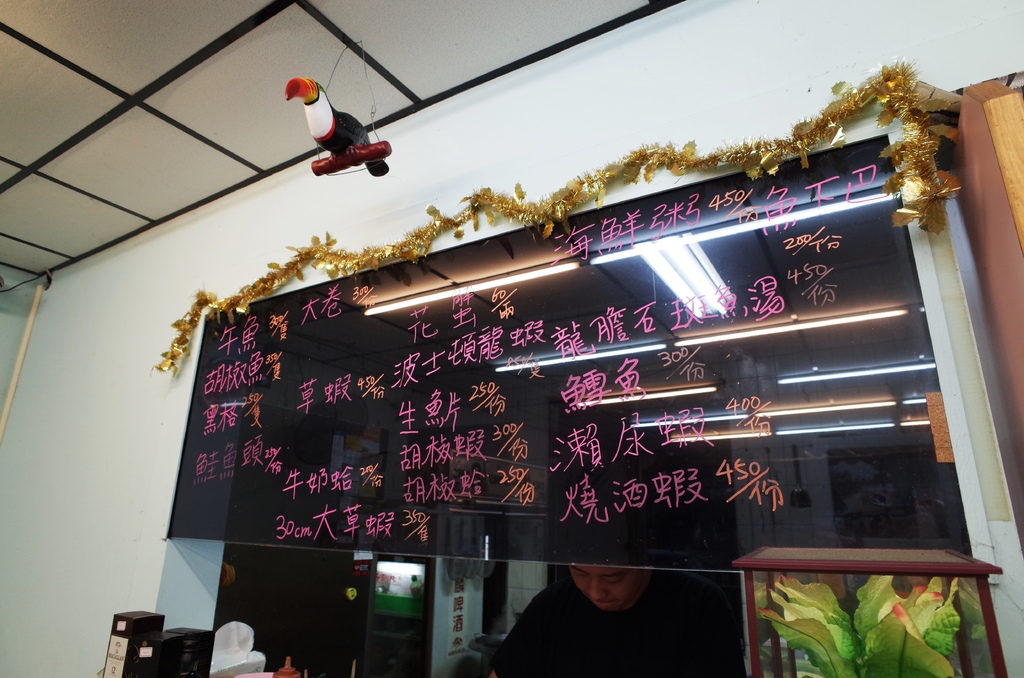 午魚 300/隻
胡椒魚 350/隻
黑格 250/隻
鮭魚頭 250/份
大卷 300/份
草蝦 450/份
牛奶蛤 250/份
30cm大草蝦 350/隻
花蟹 60/兩
波士頓龍蝦
生魚片 250/份
胡椒蝦 300/份
胡椒蛤 250/份
海鮮粥 450/份
魚下巴 200/份
龍膽石斑魚湯 450/份
鱈魚 300/份
瀨尿蝦 400/份
燒酒蝦 450/份
啤酒